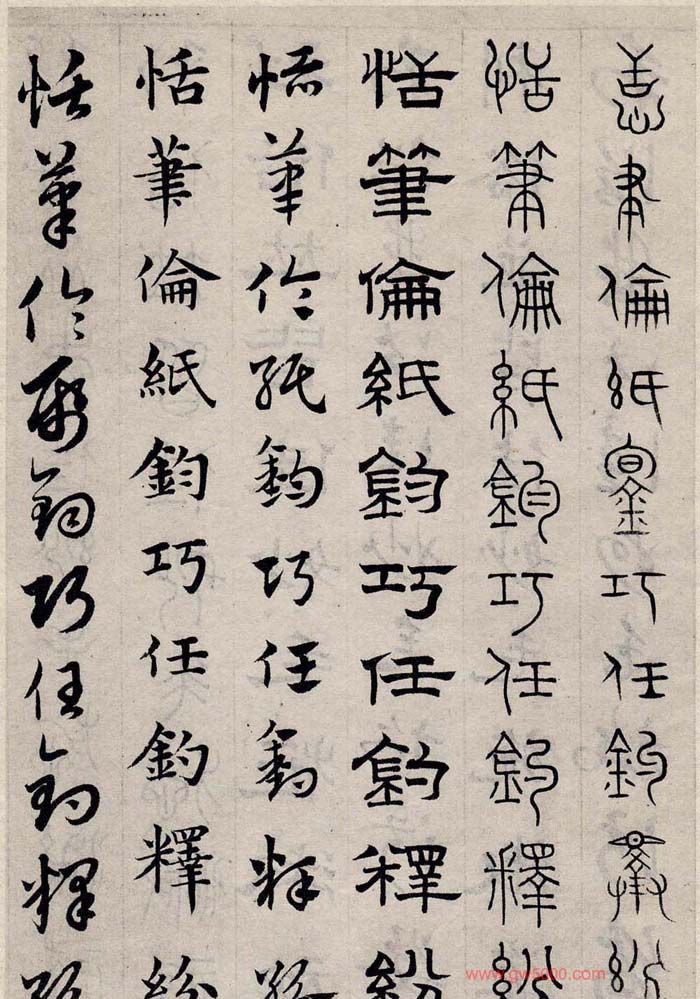 恬筆倫紙鈞巧任釣釋紛
恬筆倫紙鈞巧任釣釋紛
恬筆倫紙鈞巧任釣釋紛
恬筆倫紙鈞巧任釣釋紛
恬筆倫紙鈞巧任釣釋紛
恬筆倫紙鈞巧任釣釋紛
www.gw5000.com